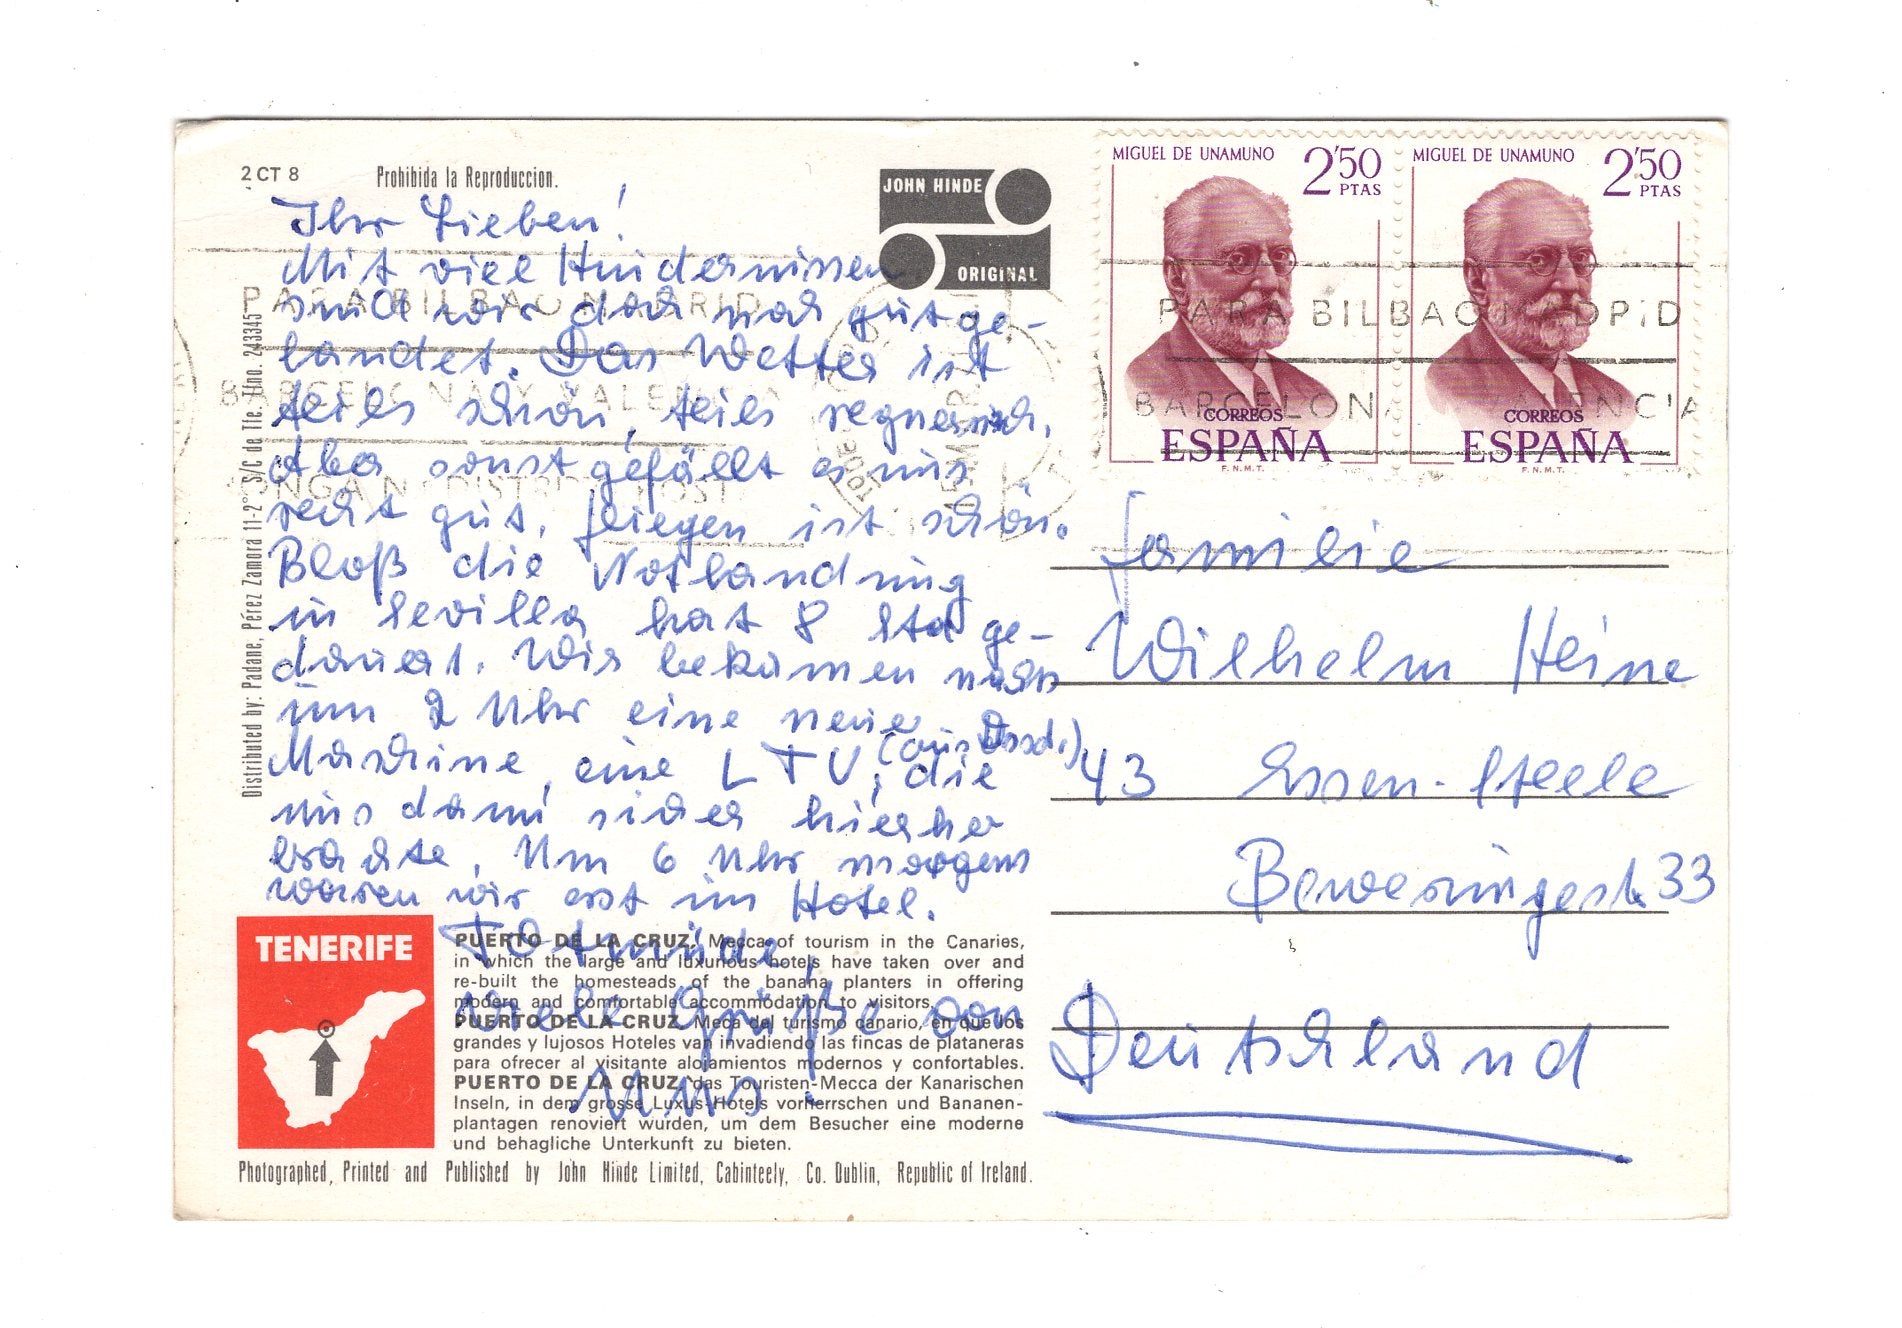 2 CT 8
Prohibida la Reproduccion.
JOHN HINDE
ORIGINAL
Ihr Lieben!
Mit viel Hindernissen
sind wir doch noch gut ge-
landet. Das Wetter ist
teils schön, teils regnerisch.
Aber sonst gefällt es uns
recht gut. Fliegen ist schön.
Bloß die Notlandung
in Sevilla hat 8 Std ge-
dauert. Wir bekamen nachts
um 2 Uhr eine neue
Maschine, eine LTU, (aus Dssd.) die
uns dann sicher hierher
brachte. Um 6 Uhr morgens
waren wir erst im Hotel.
Totmüde,
viele Grüße von
Uns!
Distributed by: Padane, Pérez Zamora 11-2° S/C de Tfe. Tfno. 243345
MIGUEL DE UNAMUNO 2'50 PTAS
CORREOS
ESPAÑA
F.N.M.T.
MIGUEL DE UNAMUNO 2'50 PTAS
CORREOS
ESPAÑA
F.N.M.T.
PARA BILBAO MADRID
BARCELONA Y VALENCIA
PONGAN DISTRITO POSTAL
PARA BILBAO MADRID
BARCELONA VALENCIA
Familie
Wilhelm Heine
43 Essen-Steele
Beweringestr. 33
Deutschland
TENERIFE
PUERTO DE LA CRUZ, Mecca of tourism in the Canaries,
in which the large and luxurious hotels have taken over and
re-built the homesteads of the banana planters in offering
modern and comfortable accommodation to visitors.
PUERTO DE LA CRUZ. Meca del turismo canario, en que los
grandes y lujosos Hoteles van invadiendo las fincas de plataneras
para ofrecer al visitante alojamientos modernos y confortables.
PUERTO DE LA CRUZ, das Touristen-Mecca der Kanarischen
Inseln, in dem grosse Luxus-Hotels vorherrschen und Bananen-
plantagen renoviert wurden, um dem Besucher eine moderne
und behagliche Unterkunft zu bieten.
Photographed, Printed and Published by John Hinde Limited, Cabinteely, Co. Dublin, Republic of Ireland.